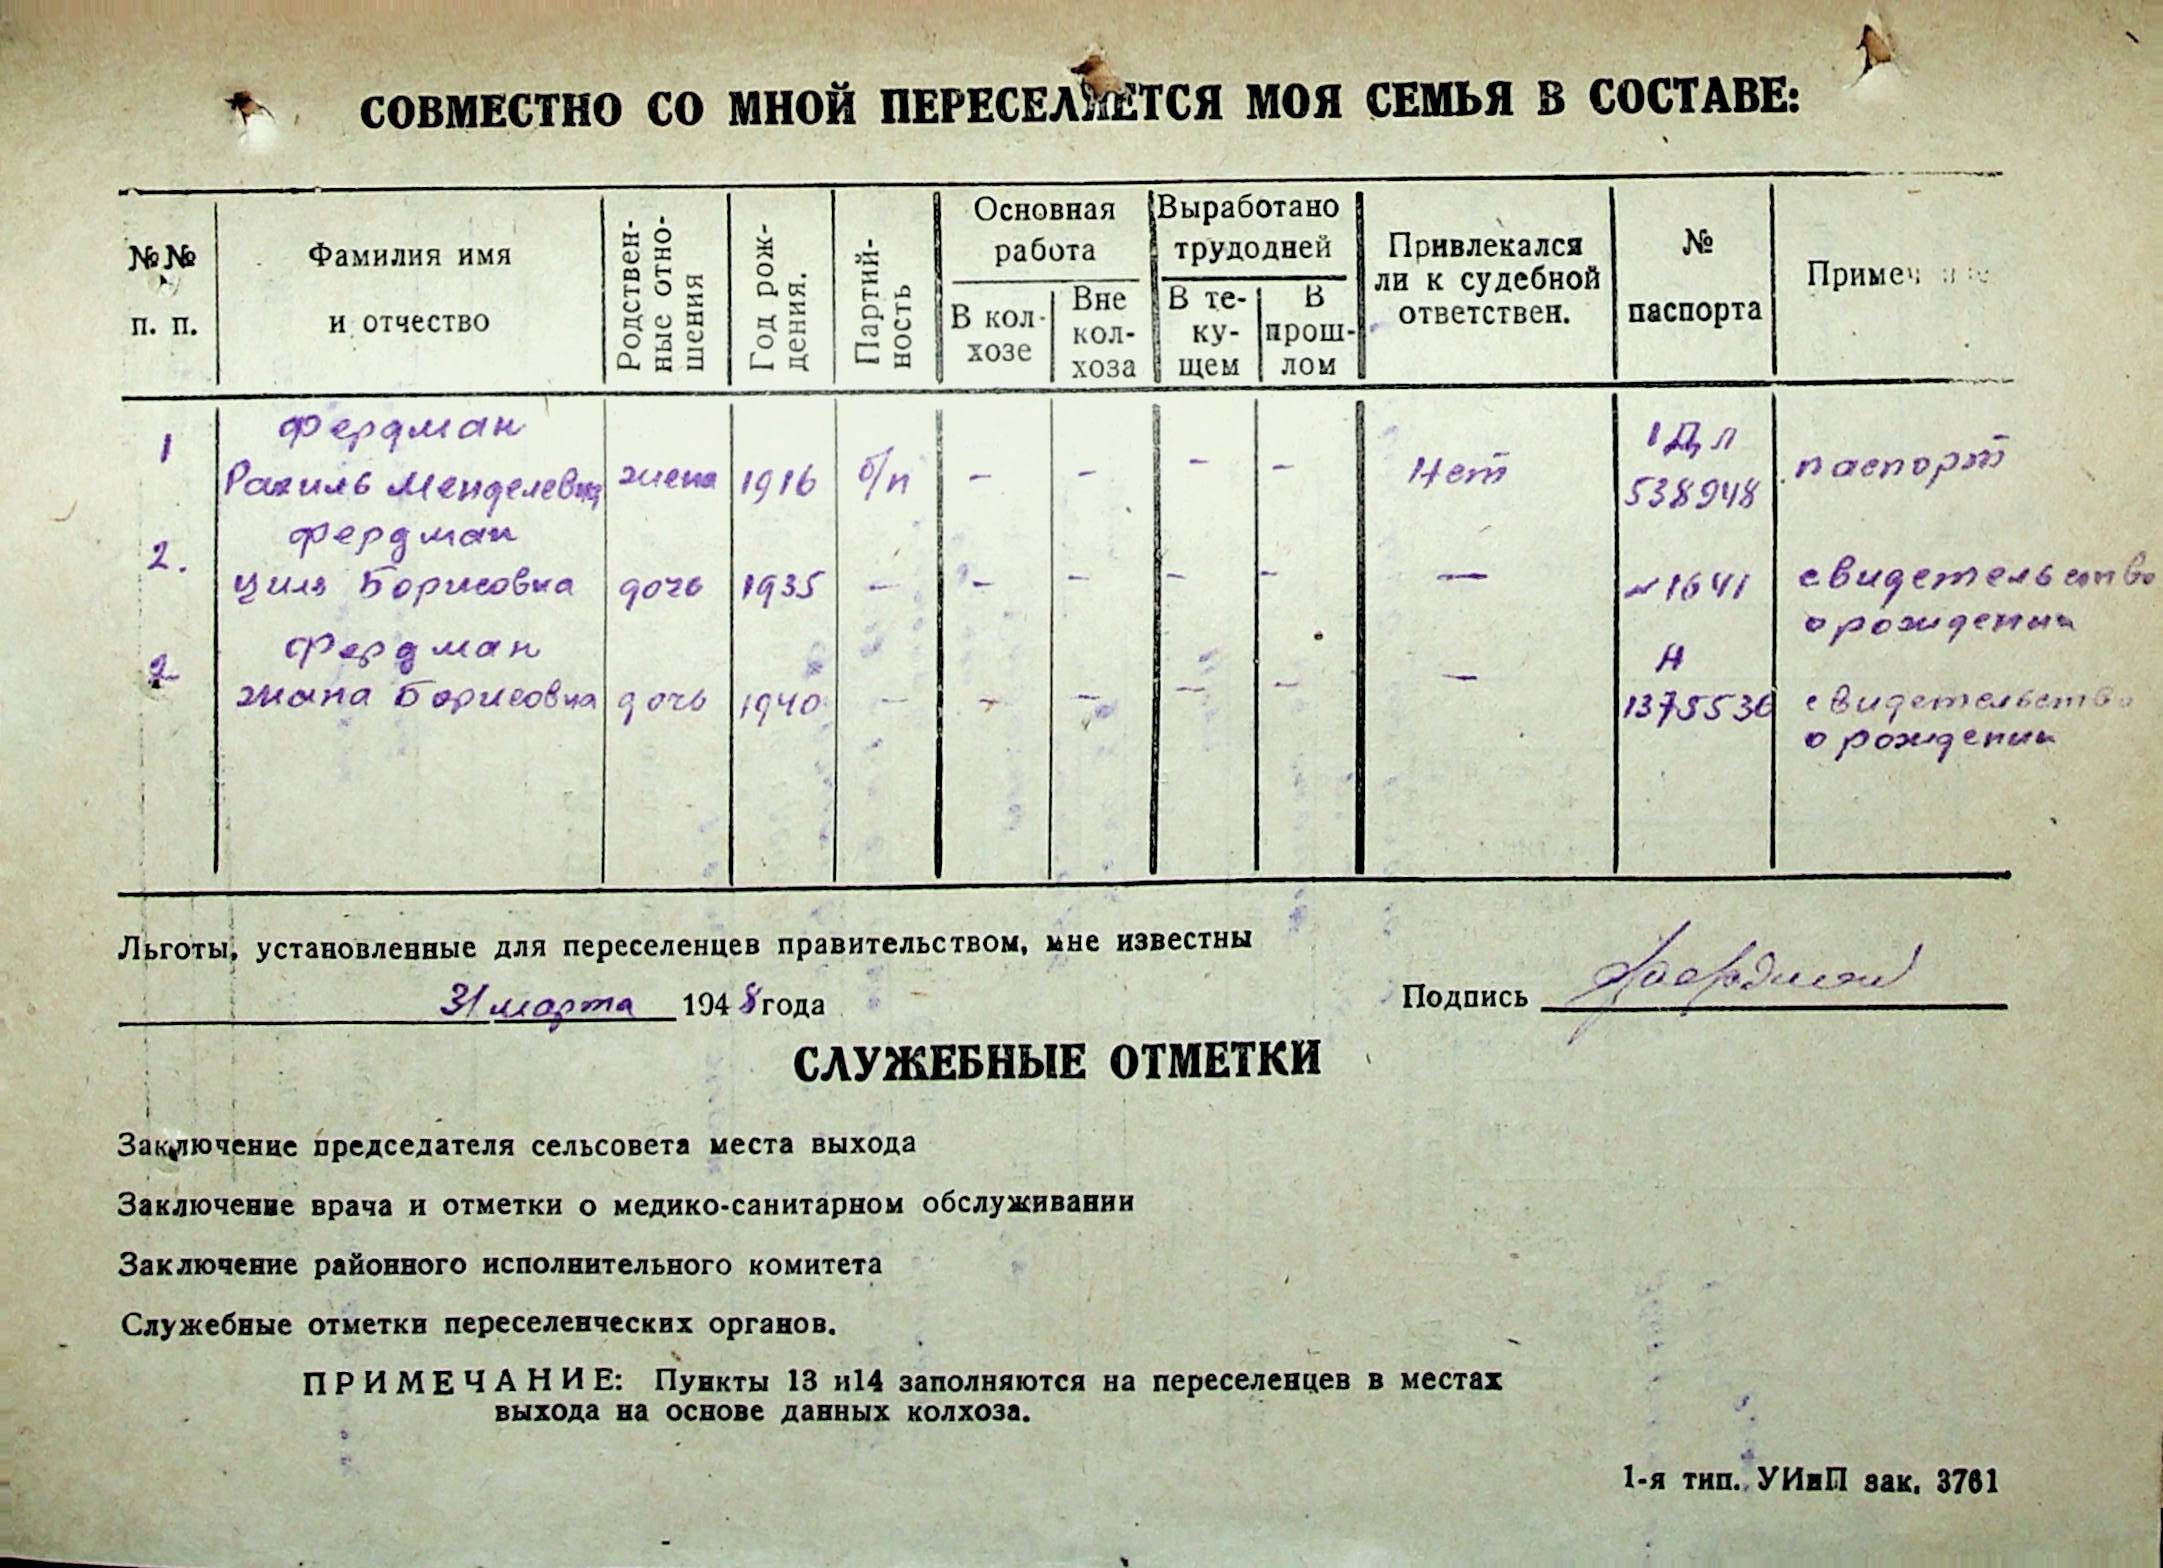 СОВМЕСТНО СО МНОЙ ПЕРЕСЕЛЯЕТСЯ МОЯ СЕМЬЯ В СОСТАВЕ:
№№ п. п.
Фамилия имя и отчество
Родственные отношения
Год рождения.
Партийность
Основная работа
В колхозе
Вне колхоза
Выработано трудодней
В текущем
В прошлом
Привлекался ли к судебной ответствен.
№ паспорта
Примеч
1 Фердман Рахиль Менделевна жена 1916 б/п - - - - Нет 1 Д Л 538948 паспорт
2. Фердман Циля Борисовна дочь 1935 - - - - - - №1641 свидетельство о рождении
Фердман Жана Борисовна дочь 1940 - - - - - - 1375536 свидетельство о рождении
Льготы, установленные для переселенцев правительством, мне известны
31 марта 1948 года
Подпись
СЛУЖЕБНЫЕ ОТМЕТКИ
Заключение председателя сельсовета места выхода
Заключение врача и отметки о медико-санитарном обслуживании
Заключение районного исполнительного комитета
Служебные отметки переселенческих органов.
ПРИМЕЧАНИЕ: Пункты 13 и14 заполняются на переселенцев в местах
выхода на основе данных колхоза.
1-я тип. УИиП зак. 3761